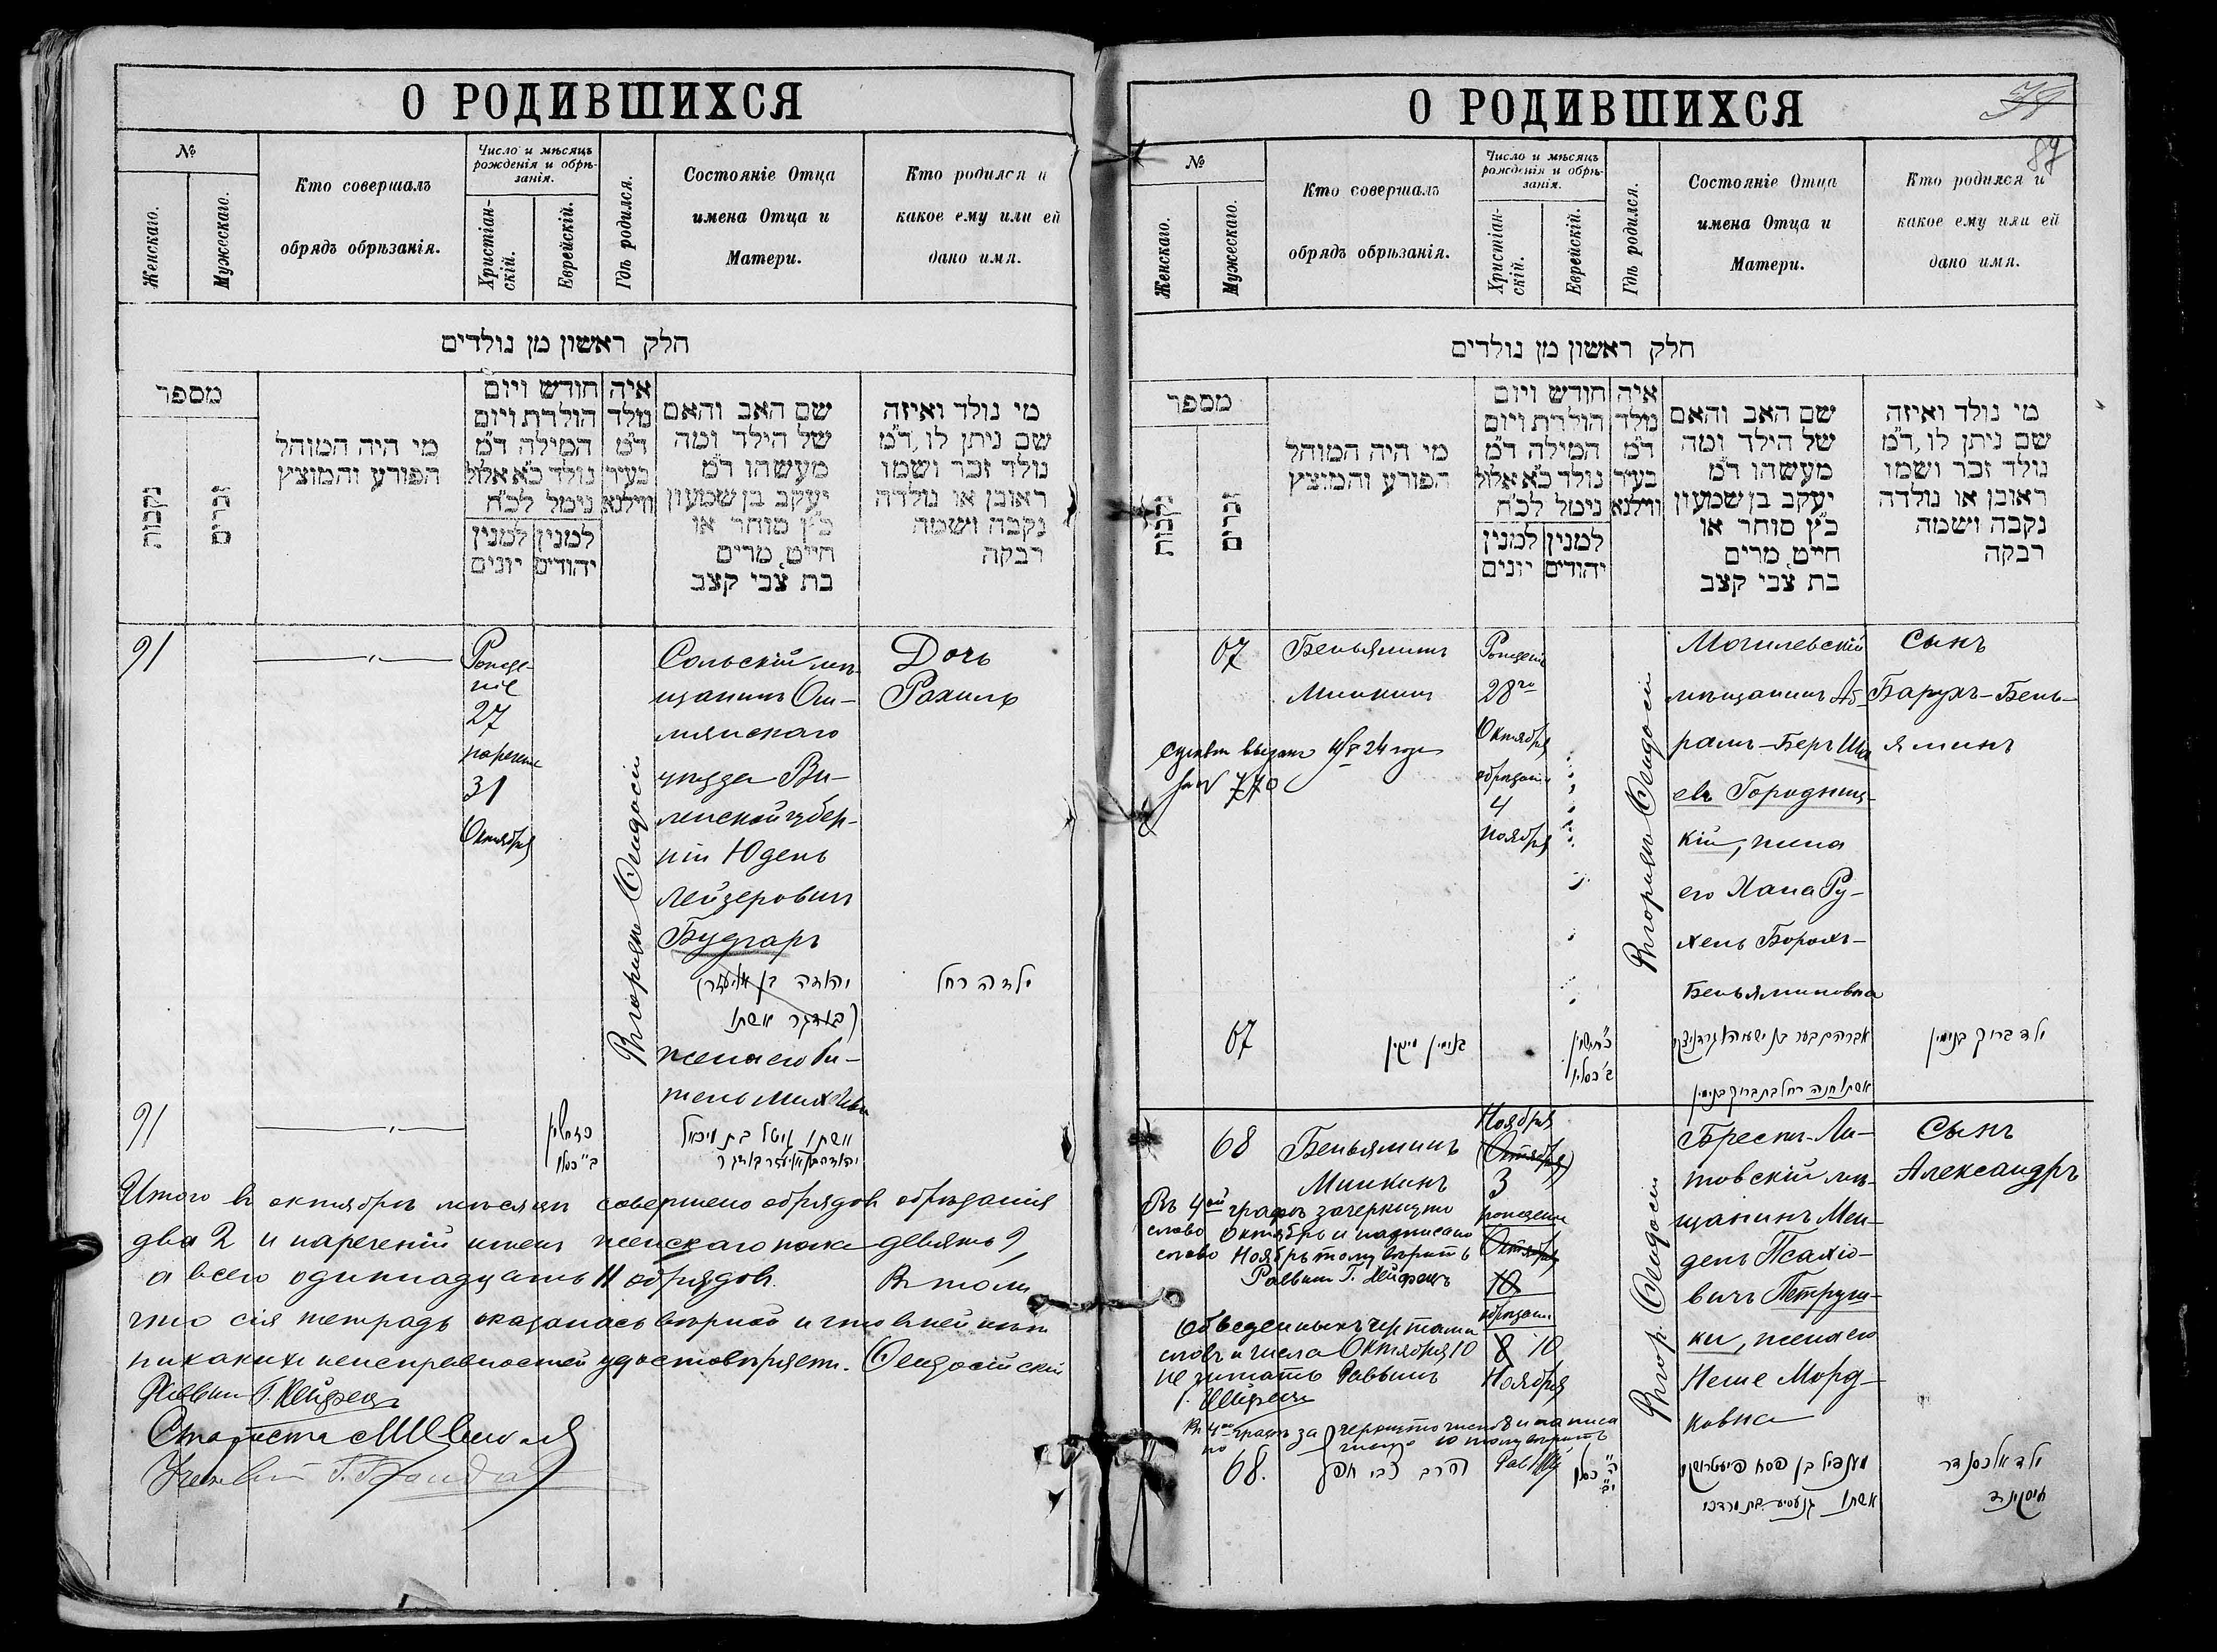 О РОДИВШИХСЯ
№
Женскаго.
Мужескаго.
Кто совершалъ
обрядъ обрѣзанія.
Число и мѣсяцъ
рожденія и обрѣ-
занія.
Христіан-
скій.
Еврейскій.
Гдѣ родился.
Состояніе Отца
имена Отца и
Матери.
Кто родился и
какое ему или ей
дано имя.
חלק ראשון מן נולדים
מספר
נקבות
זכרים
מי היה המוהל
הפורע והמוצץ
חודש ויום
הולדת ויום
המילה ד"מ
נולד כ"א אלול
נימל לכ"ח
למנין למנין
יהודים יונים
איה
נולד
ד"מ
בעיר
ווילנא
שם האב והאם
של הילד ומה
מעשהו ד"מ
יעקב בן שמעון
כ"ץ סוחר או
חייט, מרים
בת צבי קצב
מי נולד ואיזה
שם ניתן לו, ד"מ
נולד זכר ושמו
ראובן או נולדה
נקבה ושמה
רבקה
91
Рожде-
ніе
27
наречен
31
Октября
Въ городѣ Ѳеодосіи
Сольскій мѣ-
щанинъ Ош-
мянскаго
уѣзда Ви-
ленской губер-
ніи Юдель
Лейзеровичъ
Будгаръ
יהודה בן אליעזר
בודגר אשתו
жена его Ги-
тель Михелевна
Дочь
Рахиль
ילדה רחל
91
אשתו גיטל בת מיכאל
יהודה בן אליעזר בודגר
Итого въ октябрѣ мѣсяцѣ совершено обрядовъ обрѣзанія
два 2 и нареченій именъ женскаго пола девять 9,
а всего одиннадцать 11 обрядовъ. Въ томъ
что сія тетрадь оказалась вѣрной и что въ ней нѣтъ
никакихъ неисправностей удостовѣряетъ. Ѳеодосійскій
Раввинъ Г. Хейфецъ
Староста
О РОДИВШИХСЯ
87
№
Женскаго.
Мужескаго.
Кто совершалъ
обрядъ обрѣзанія.
Число и мѣсяцъ
рожденія и обрѣ-
занія.
Христіан-
скій.
Еврейскій.
Гдѣ родился.
Состояніе Отца
имена Отца и
Матери.
Кто родился и
какое ему или ей
дано имя.
חלק ראשון מן נולדים
מספר
נקבות
זכרים
מי היה המוהל
הפורע והמוצץ
חודש ויום
הולדת ויום
המילה ד"מ
נולד כ"א אלול
נימל לכ"ח
למנין למנין
יהודים יונים
איה
נולד
ד"מ
בעיר
ווילנא
שם האב והאם
של הילד ומה
מעשהו ד"מ
יעקב בן שמעון
כ"ץ סוחר או
חייט, מרים
בת צבי קצב
מי נולד ואיזה
שם ניתן לו, ד"מ
נולד זכר ושמו
ראובן או נולדה
נקבה ושמה
רבקה
67
Беньяминъ
Минкинъ
выдано 24 года
за № 770
Рожденіе
28го
Октября
обрѣзаніе
4
Ноября
Въ городѣ Ѳеодосіи
Могилевскій
мѣщанинъ Аб-
рамъ-Беръ
евъ Городниц-
кій, жена
его Хана Ру-
хель Борохъ-
Беньяминовна
Сынъ
Барухъ-Бень-
яминъ
67
בנימין מינקין
ב' כסלו
אשתו חנה רחל בת ברוך בנימין
ילד ברוך בנימין
68
Беньяминъ
Минкинъ
Ноября
(Октября)
3
рожденіе
Октября
10
обрѣзаніе
8 10
Ноября
Въ 4ой графѣ зачеркнуто
слово Октябрь и надписано
слово Ноябрь тому вѣрить
Раввинъ Г. Хейфецъ
Обведенныхъ чертами
словъ и числа Октября 10
не читать Раввинъ
Г. Хейфецъ
Въ гор. Ѳеодосіи
Брестъ-Ли-
товскій мѣ-
щанинъ Мен-
дель Псахіо-
вичъ Петруш-
ки, жена его
Неше Морд-
ковна
Сынъ
Александръ
68.
הרב צבי חפץ
ה' כסלו
י"ב
אשתו בת מרדכי
ילד אלכסנדר